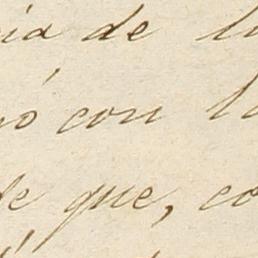 ia de l
ó con l
de que, co